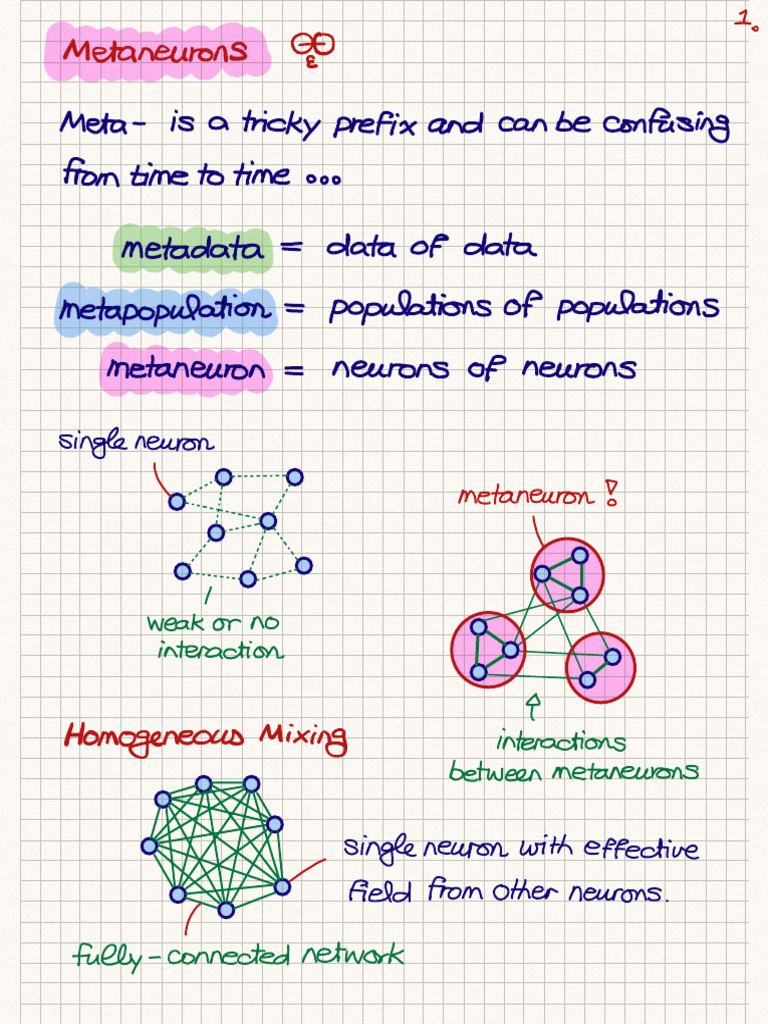 1.
Metaneurons
Meta- is a tricky prefix and can be confusing
from time to time ...
metadata = data of data
metapopulation = populations of populations
metaneuron = neurons of neurons
single neuron
weak or no
interaction
metaneuron!
interactions
between metaneurons
Homogeneous Mixing
single neuron with effective
field from other neurons.
fully-connected network